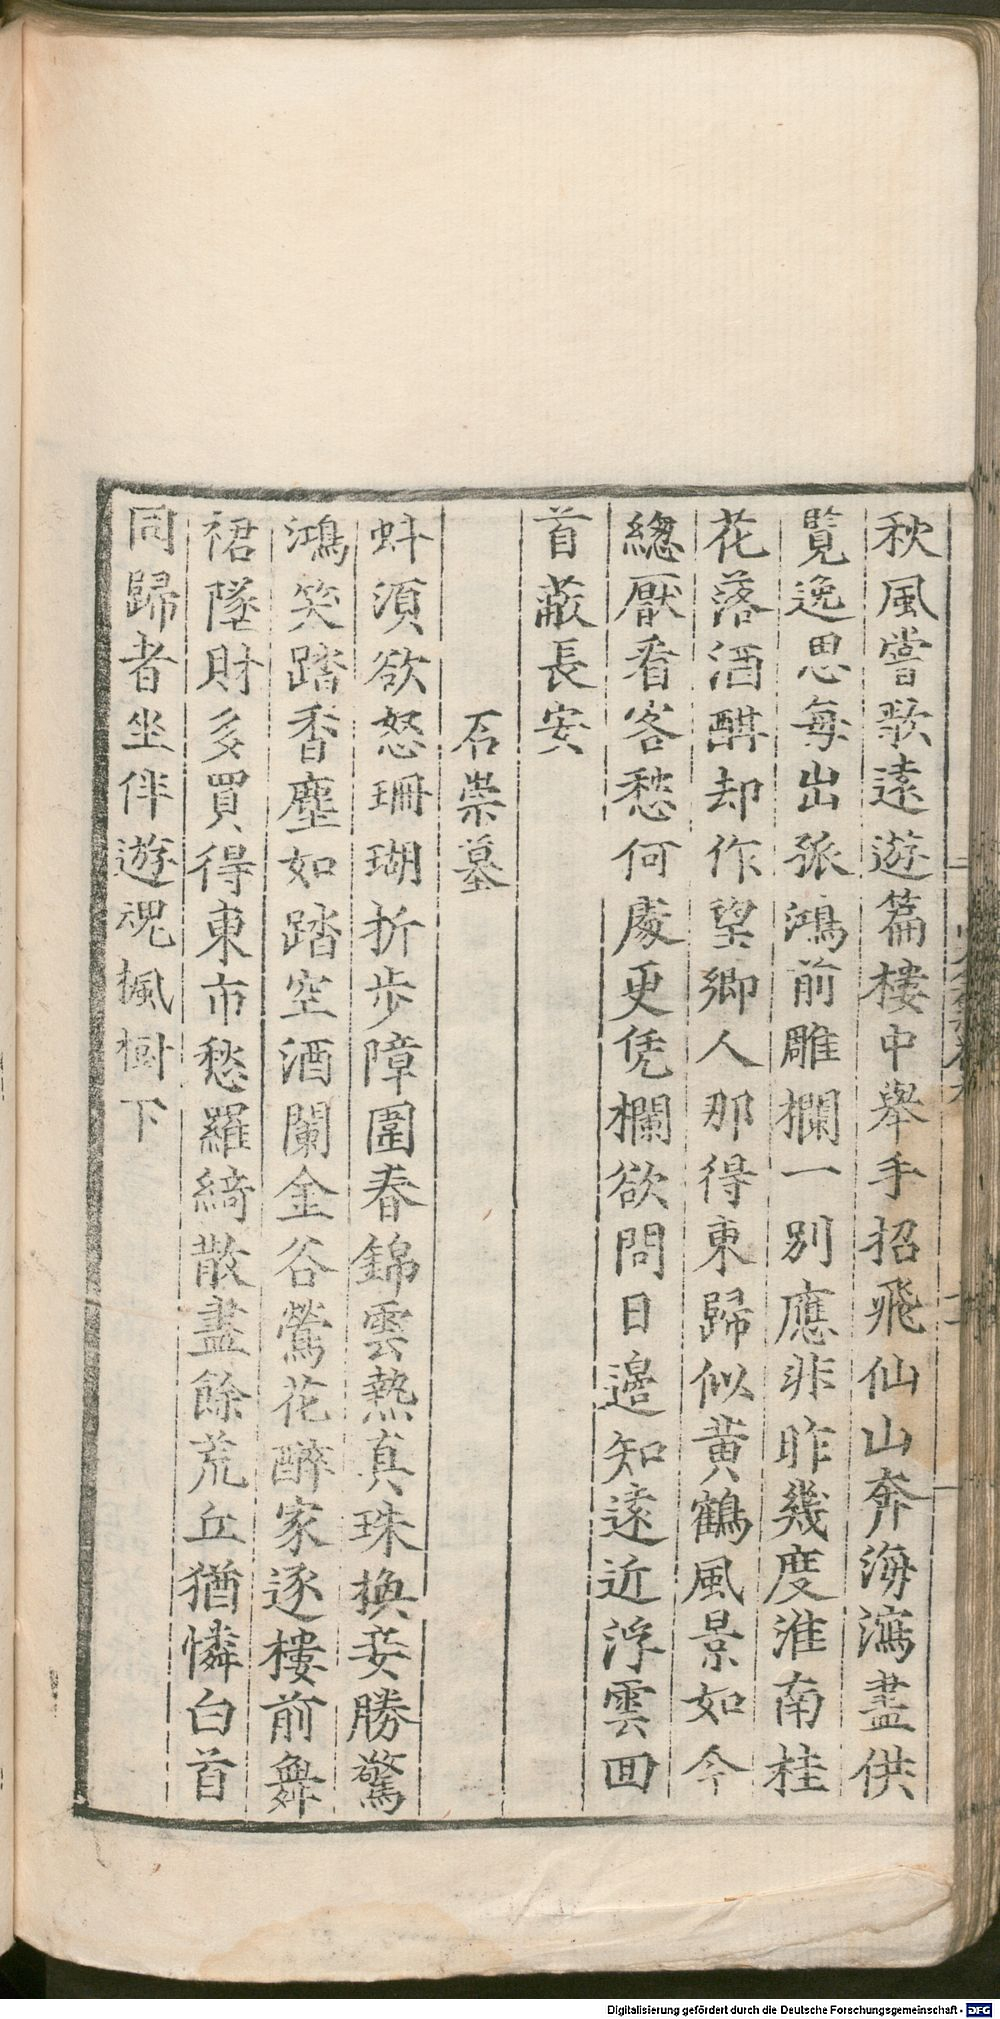 秋風嘗歌遠遊篇樓中舉手招飛仙山奔海瀉盡供
覽逸思每出孤鴻前雕欄一別應非昨幾度淮南桂
花落酒醒却作望鄉人那得東歸似黄鶴風景如今
緫厭看客愁何處更凭欄欲問日邉知遠近浮雲回
首蔽長安
石崇墓
蚪須欲怒珊瑚折步障圍春錦雲熱真珠換妾勝驚
鴻笑踏香塵如踏空酒闌金谷鶯花醉家逐樓前舞
裙墜財多買得東市愁羅綺散盡餘荒丘猶憐白首
同歸者坐伴遊魂楓樹下
Digitalisierung gefördert durch die Deutsche Forschungsgemeinschaft - DFG